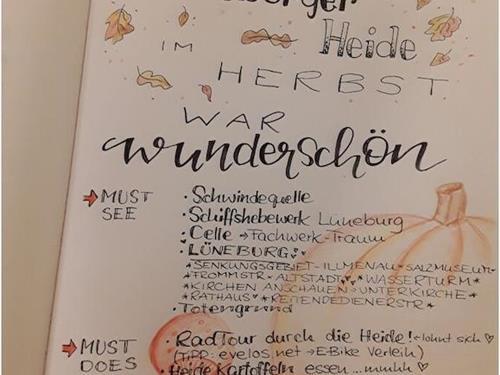 Heide
IM
HERBST
WAR
wunderschön
→ MUST SEE
· Schwindequelle
· Schiffshebewerk Lüneburg
· Celle → Fachwerk-Traum
· LÜNEBURG ♥
*SENKUNGSGEBIET-ILLMENAU-SALZMUSEUM-
*TROMMSTR*ALTSTADT♥*WASSERTURM*
*KIRCHEN ANSCHAUEN→UNTERKIRCHE*
*RATHAUS*♥*REITENDEDIENERSTR*
· Totengrund
→ MUST DOES
· RadTour durch die Heide! ← lohnt sich ♥
(TIPP: evelos.net → E-Bike Verleih)
· Heide Kartoffeln essen ... mmmh ♥